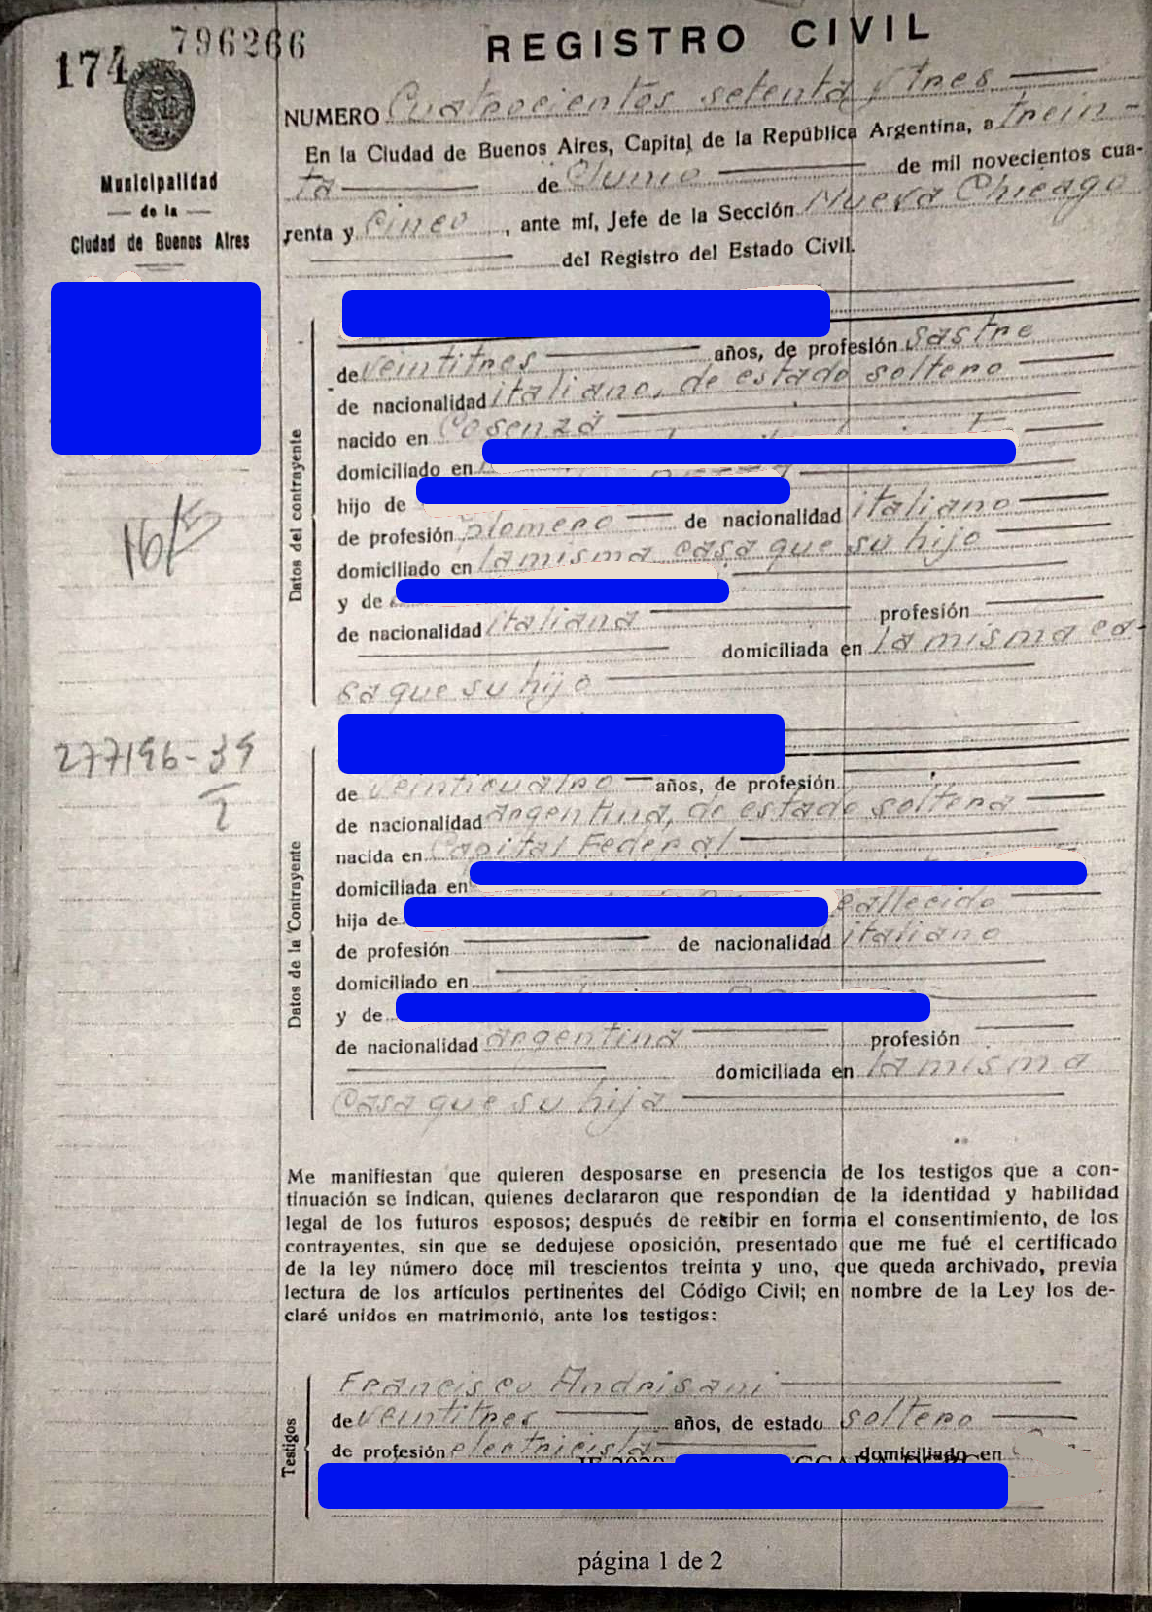 174 796266
REGISTRO CIVIL
Municipalidad
de la
Ciudad de Buenos Aires
NUMERO Cuatrocientos setenta y tres
En la Ciudad de Buenos Aires, Capital de la República Argentina, a trein-
ta de Junio de mil novecientos cua-
renta y Cinco, ante mí, Jefe de la Sección Nueva Chicago
del Registro del Estado Civil.
Datos del contrayente
de veintitres años, de profesión sastre
de nacionalidad italiano, de estado soltero
nacido en Cosenza
domiciliado en
hijo de
de profesión plomero de nacionalidad italiano
domiciliado en la misma casa que su hijo
y de
de nacionalidad italiana profesión
domiciliada en la misma ca-
sa que su hijo
277196-39
Datos de la Contrayente
de veinticuatro años, de profesión
de nacionalidad argentina, de estado soltera
nacida en Capital Federal
domiciliada en
hija de fallecido
de profesión de nacionalidad italiano
domiciliado en
y de
de nacionalidad argentina profesión
domiciliada en la misma
casa que su hija
Me manifiestan que quieren desposarse en presencia de los testigos que a con-
tinuación se indican, quienes declararon que respondian de la identidad y habilidad
legal de los futuros esposos; después de recibir en forma el consentimiento, de los
contrayentes, sin que se dedujese oposición, presentado que me fué el certificado
de la ley número doce mil trescientos treinta y uno, que queda archivado, previa
lectura de los artículos pertinentes del Código Civil; en nombre de la Ley los de-
claré unidos en matrimonio, ante los testigos:
Testigos
Francisco Andrisani
de veintitres años, de estado soltero
de profesión electricista domiciliado en
página 1 de 2